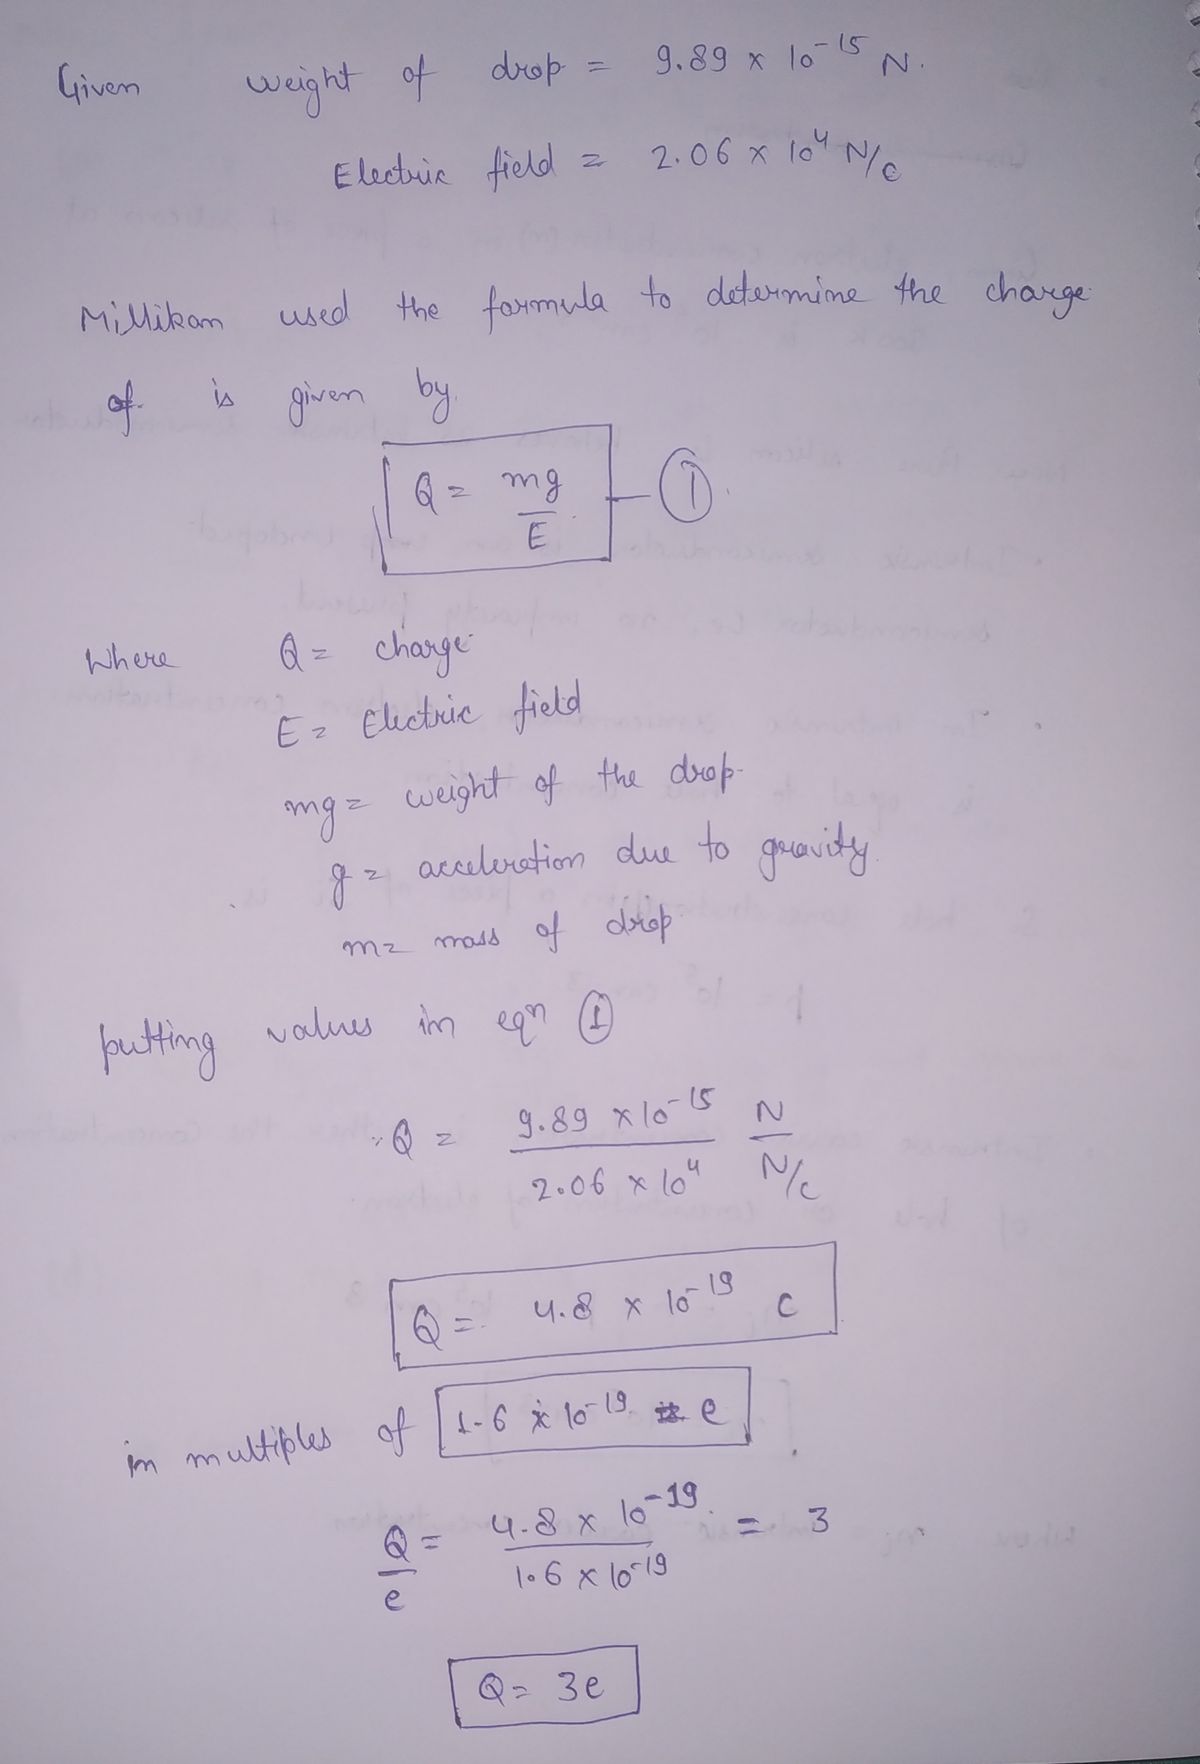 Given weight of drop = 9.89 x 10^-15 N.
Electric field = 2.06 x 10^4 N/C
Millikan used the formula to determine the charge
of is given by.
Q = mg/E — ①
Where Q = charge
E = Electric field
mg = weight of the drop
g = acceleration due to gravity.
m = mass of drop
putting values in eqn ①
Q = 9.89 x 10^-15 / 2.06 x 10^4 N / N/C
Q = 4.8 x 10^-19 C
in multiples of 1.6 x 10^-19 e
Q/e = 4.8 x 10^-19 / 1.6 x 10^-19 = 3
Q = 3e